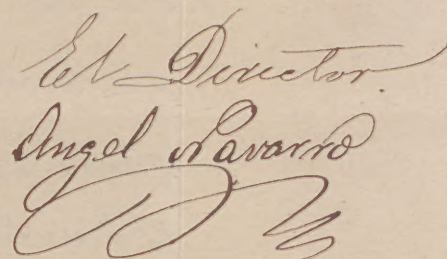 El Director.
Angel Navarro